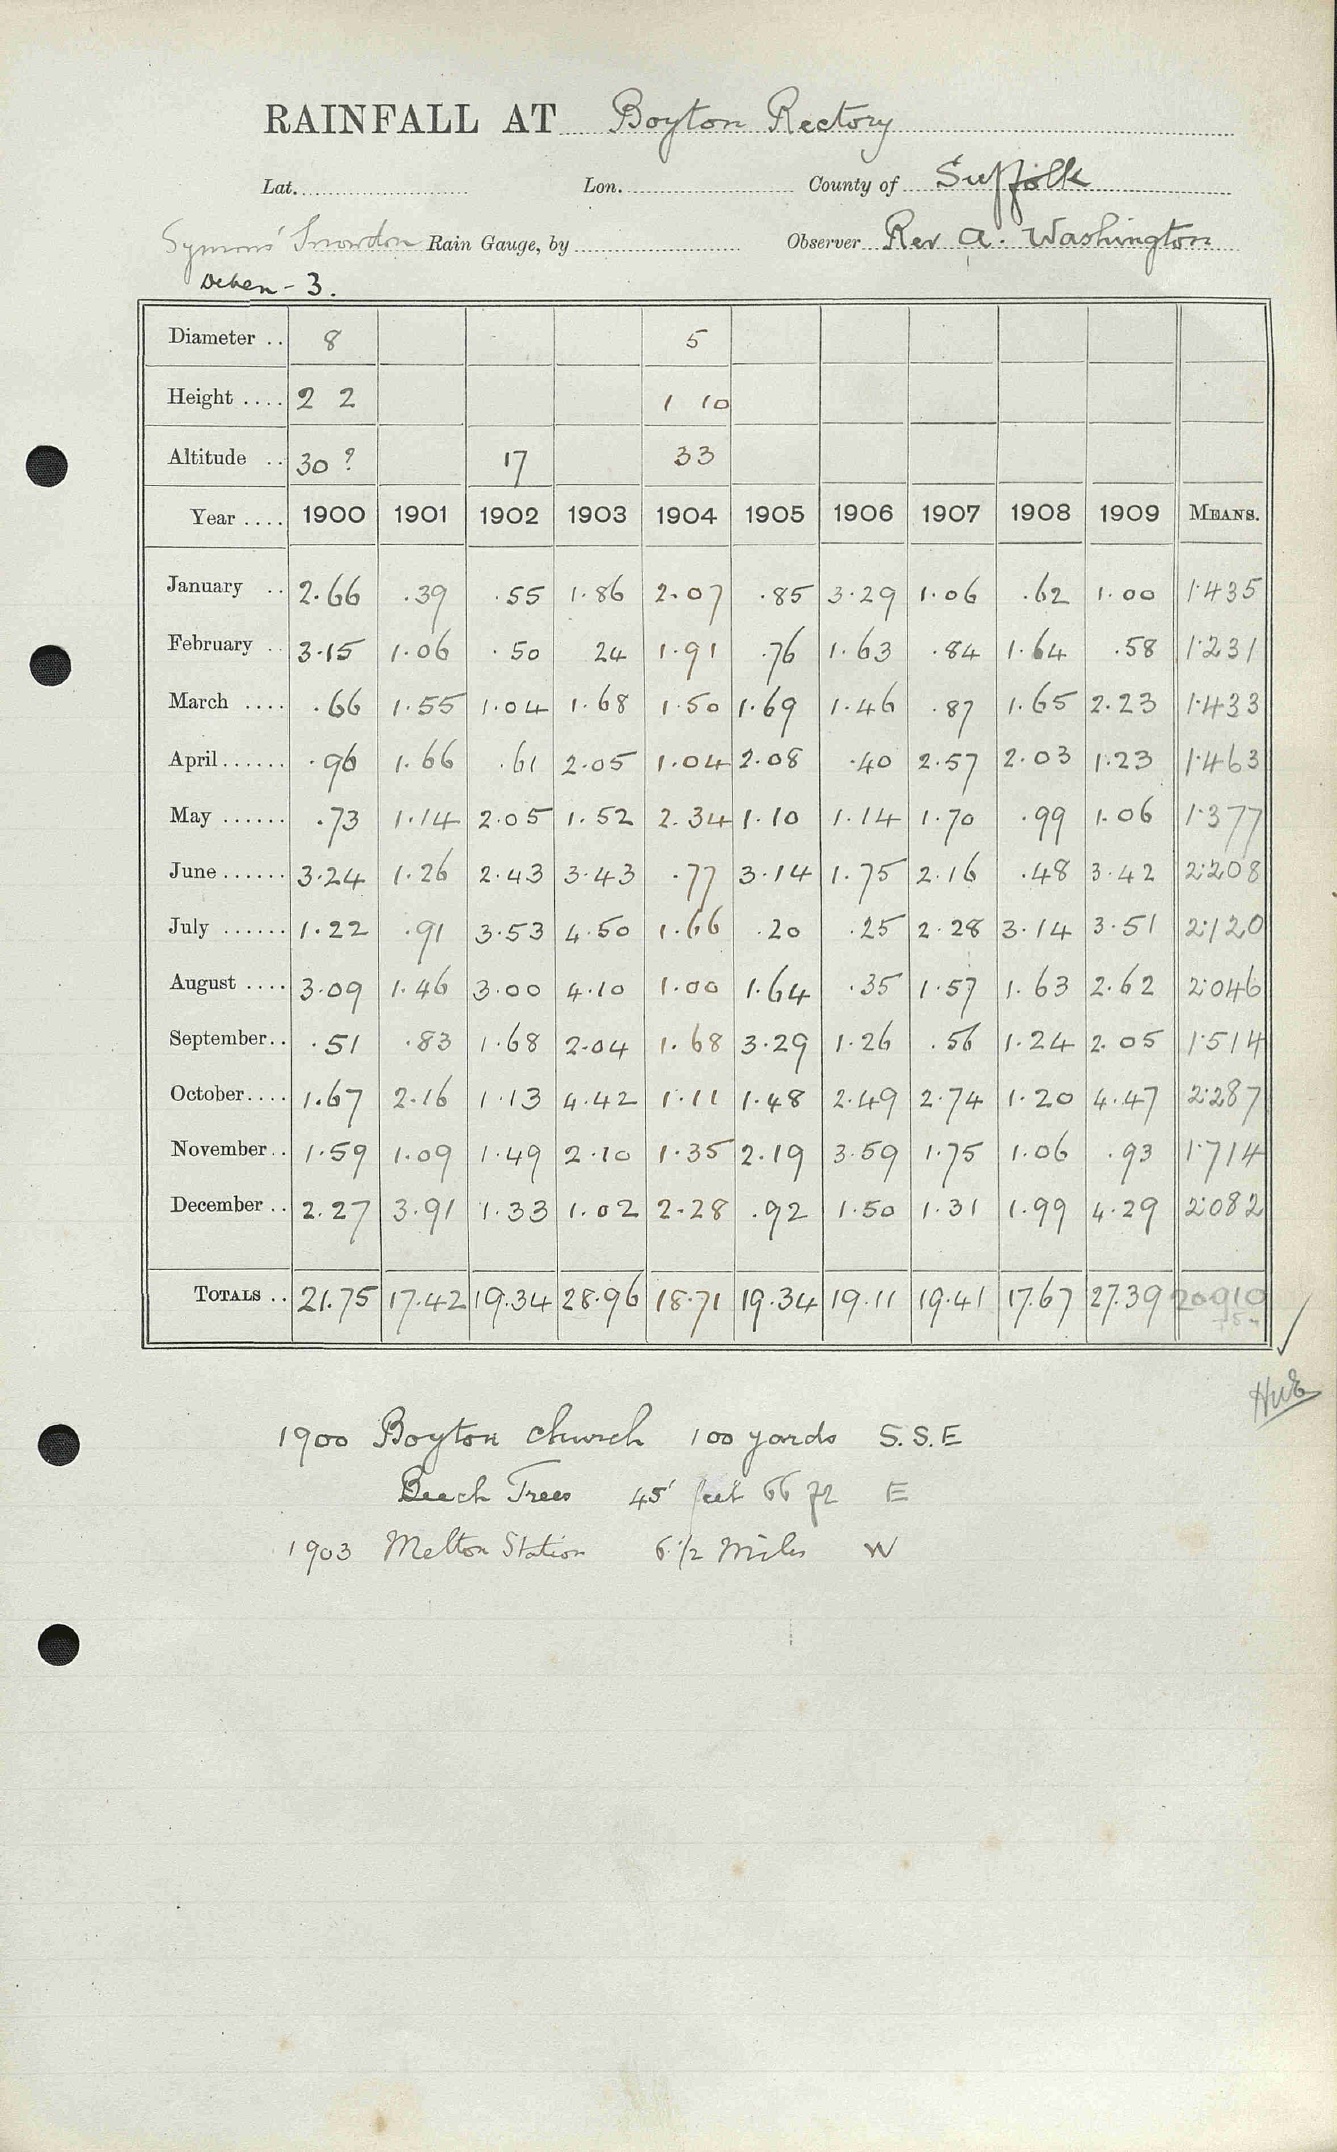 RAINFALL AT Boyton Rectory
Lat. Lon. County of Suffolk
Symons' Snowdon Rain Gauge, by Observer Rev A. Washington
Deben - 3.
Diameter .. 8 5
Height .... 2 2 1 10
Altitude .. 30 ? 17 33
Year .... 1900 1901 1902 1903 1904 1905 1906 1907 1908 1909 MEANS.
January .. 2.66 .39 .55 1.86 2.07 .85 3.29 1.06 .62 1.00 1.435
February .. 3.15 1.06 .50 24 1.91 .76 1.63 .84 1.64 .58 1.231
March .... .66 1.55 1.04 1.68 1.50 1.69 1.46 .87 1.65 2.23 1.433
April...... .96 1.66 .61 2.05 1.04 2.08 .40 2.57 2.03 1.23 1.463
May ...... .73 1.14 2.05 1.52 2.34 1.10 1.14 1.70 .99 1.06 1.377
June...... 3.24 1.26 2.43 3.43 .77 3.14 1.75 2.16 .48 3.42 2.208
July ...... 1.22 .91 3.53 4.50 1.66 .20 .25 2.28 3.14 3.51 2.120
August .... 3.09 1.46 3.00 4.10 1.00 1.64 .35 1.57 1.63 2.62 2.046
September.. .51 .83 1.68 2.04 1.68 3.29 1.26 .56 1.24 2.05 1.514
October.... 1.67 2.16 1.13 4.42 1.11 1.48 2.49 2.74 1.20 4.47 2.287
November.. 1.59 1.09 1.49 2.10 1.35 2.19 3.59 1.75 1.06 .93 1.714
December .. 2.27 3.91 1.33 1.02 2.28 .92 1.50 1.31 1.99 4.29 2.082
TOTALS .. 21.75 17.42 19.34 28.96 18.71 19.34 19.11 19.41 17.67 27.39 20910
1900 Boyton church 100 yards S.S.E
Beech Trees 45' feet 66 ft E
1903 Melton Station 6 1/2 Miles W